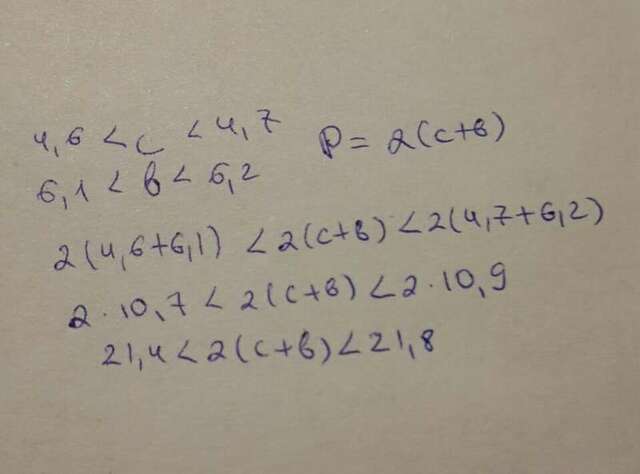 4,6 < c < 4,7 P = 2(c+в)
6,1 < в < 6,2
2(4,6+6,1) < 2(c+в) < 2(4,7+6,2)
2 · 10,7 < 2(c+в) < 2 · 10,9
21,4 < 2(c+в) < 21,8